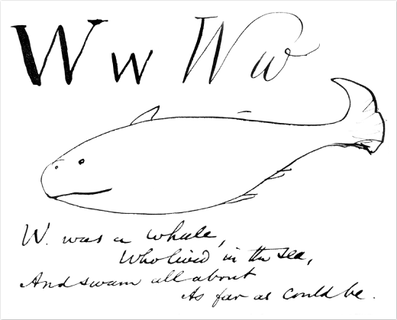 W w W w
W. was a whale,
Who lived in the sea,
And swam all about
As far as could be.